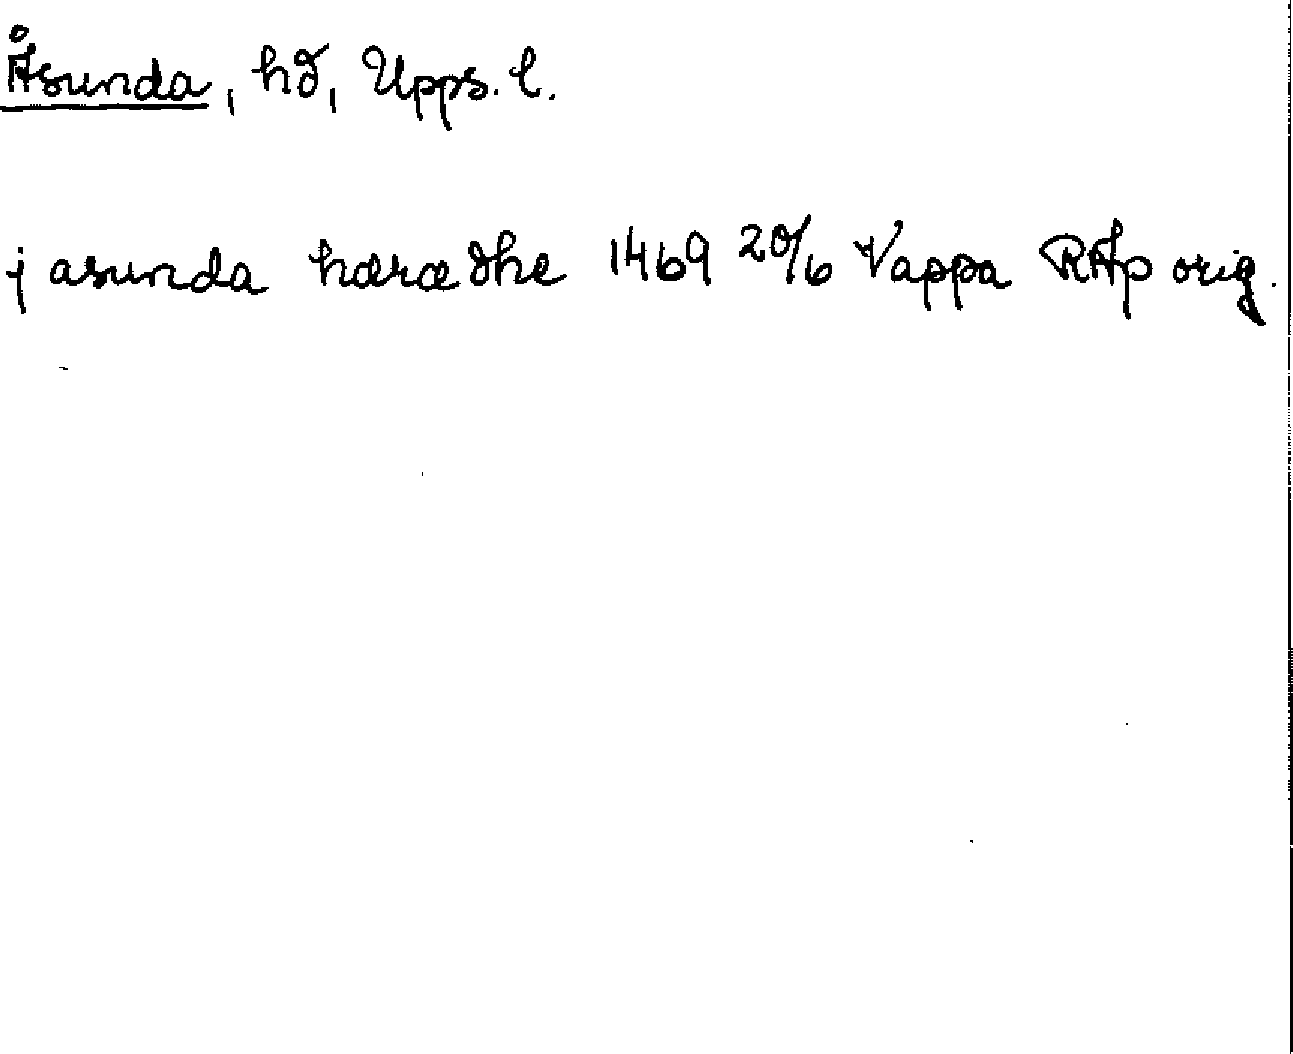 Åsunda, hd, Upps. l.
j asunda hærædhe 1469 20/6 Vappa RAp orig.